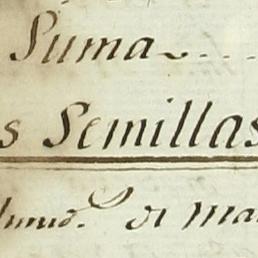 Suma
s Semillas
di ma